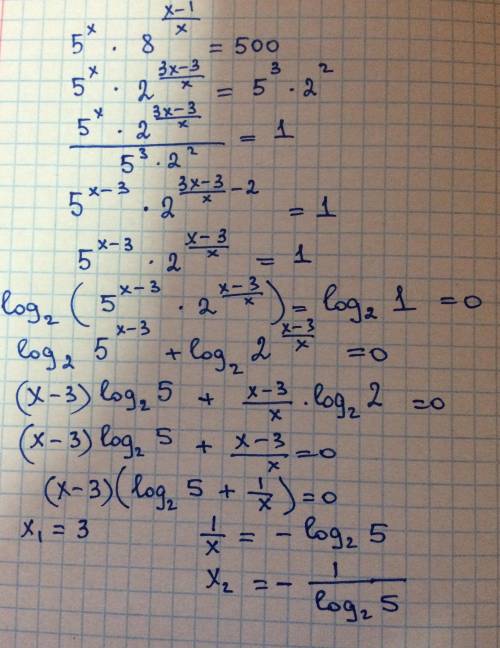 5^x · 8^((x-1)/x) = 500
5^x · 2^((3x-3)/x) = 5^3 · 2^2
(5^x · 2^((3x-3)/x)) / (5^3 · 2^2) = 1
5^(x-3) · 2^((3x-3)/x - 2) = 1
5^(x-3) · 2^((x-3)/x) = 1
log₂ (5^(x-3) · 2^((x-3)/x)) = log₂ 1 = 0
log₂ 5^(x-3) + log₂ 2^((x-3)/x) = 0
(x-3) log₂ 5 + (x-3)/x · log₂ 2 = 0
(x-3) log₂ 5 + (x-3)/x = 0
(x-3)(log₂ 5 + 1/x) = 0
x₁ = 3 1/x = - log₂ 5
x₂ = - 1/(log₂ 5)